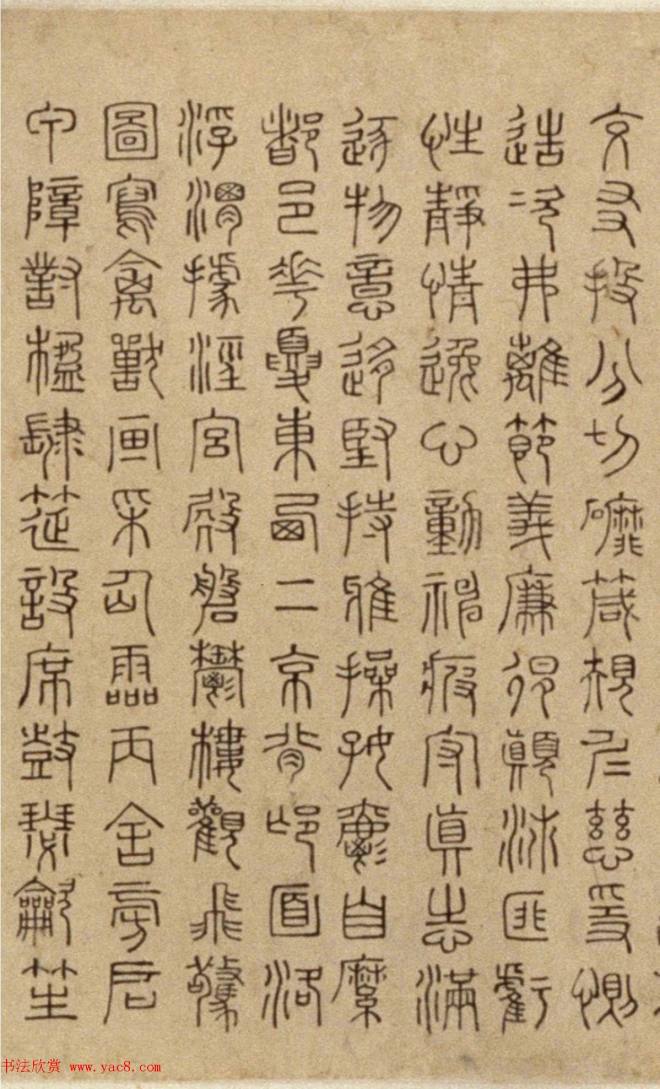 交友投分切磨箴規仁慈隱惻
造次弗離節義廉退顛沛匪虧
性靜情逸心動神疲守真志滿
逐物意移堅持雅操好爵自縻
都邑華夏東西二京背邙面洛
浮渭據涇宮殿盤鬱樓觀飛驚
圖寫禽獸畫彩仙靈丙舍傍啟
甲帳對楹肆筵設席鼓瑟吹笙
书法欣赏 www.yac8.com